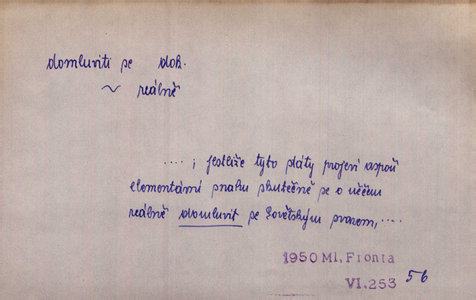 domluviti se dok.
~ reálně
.... ; jestliže tyto státy projeví aspoň
elementární snahu skutečně se o něčem
reálně domluvit se Sovětským svazem, ....
1950 Ml. Fronta
VI. 253 56